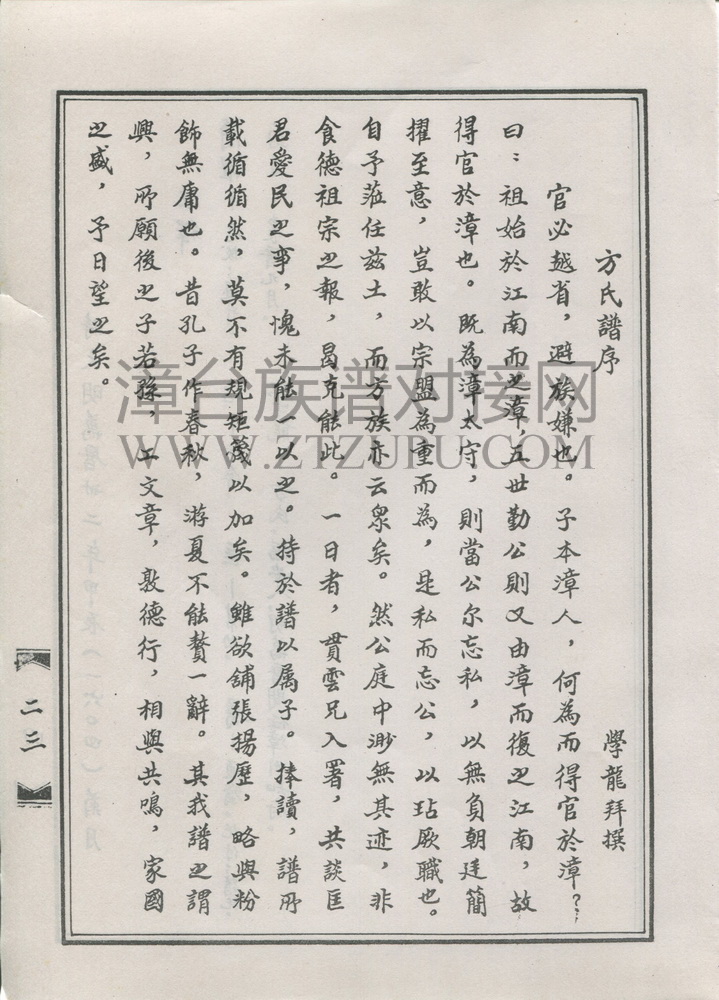 方氏譜序
學龍拜撰
官必越省，避族嫌也。子本漳人，何為而得官於漳？
曰：祖始於江南而之漳，五世勤公則又由漳而復之江南，故
得官於漳也。既為漳太守，則當公尔忘私，以無負朝廷簡
擢至意，豈敢以宗盟為重而為，是私而忘公，以玷厥職也。
自予蒞任兹土，而方族亦云衆矣。然公庭中渺無其迹，非
食德祖宗之報，曷克能此。一日者，貫雲兄入署，共談匡
君愛民之事，愧未能一以之。持於譜以属予。捧讀，譜所
載循循然，莫不有規矩蔑以加矣。雖欲舖張揚歷，略與粉
飾無庸也。昔孔子作春秋，游夏不能贅一辭。其我譜之謂
興，所願後之子若孫，工文章，敦德行，相與共鳴，家國
之盛，予日望之矣。
二三
漳台族谱对接网
WWW.ZTZUPU.COM